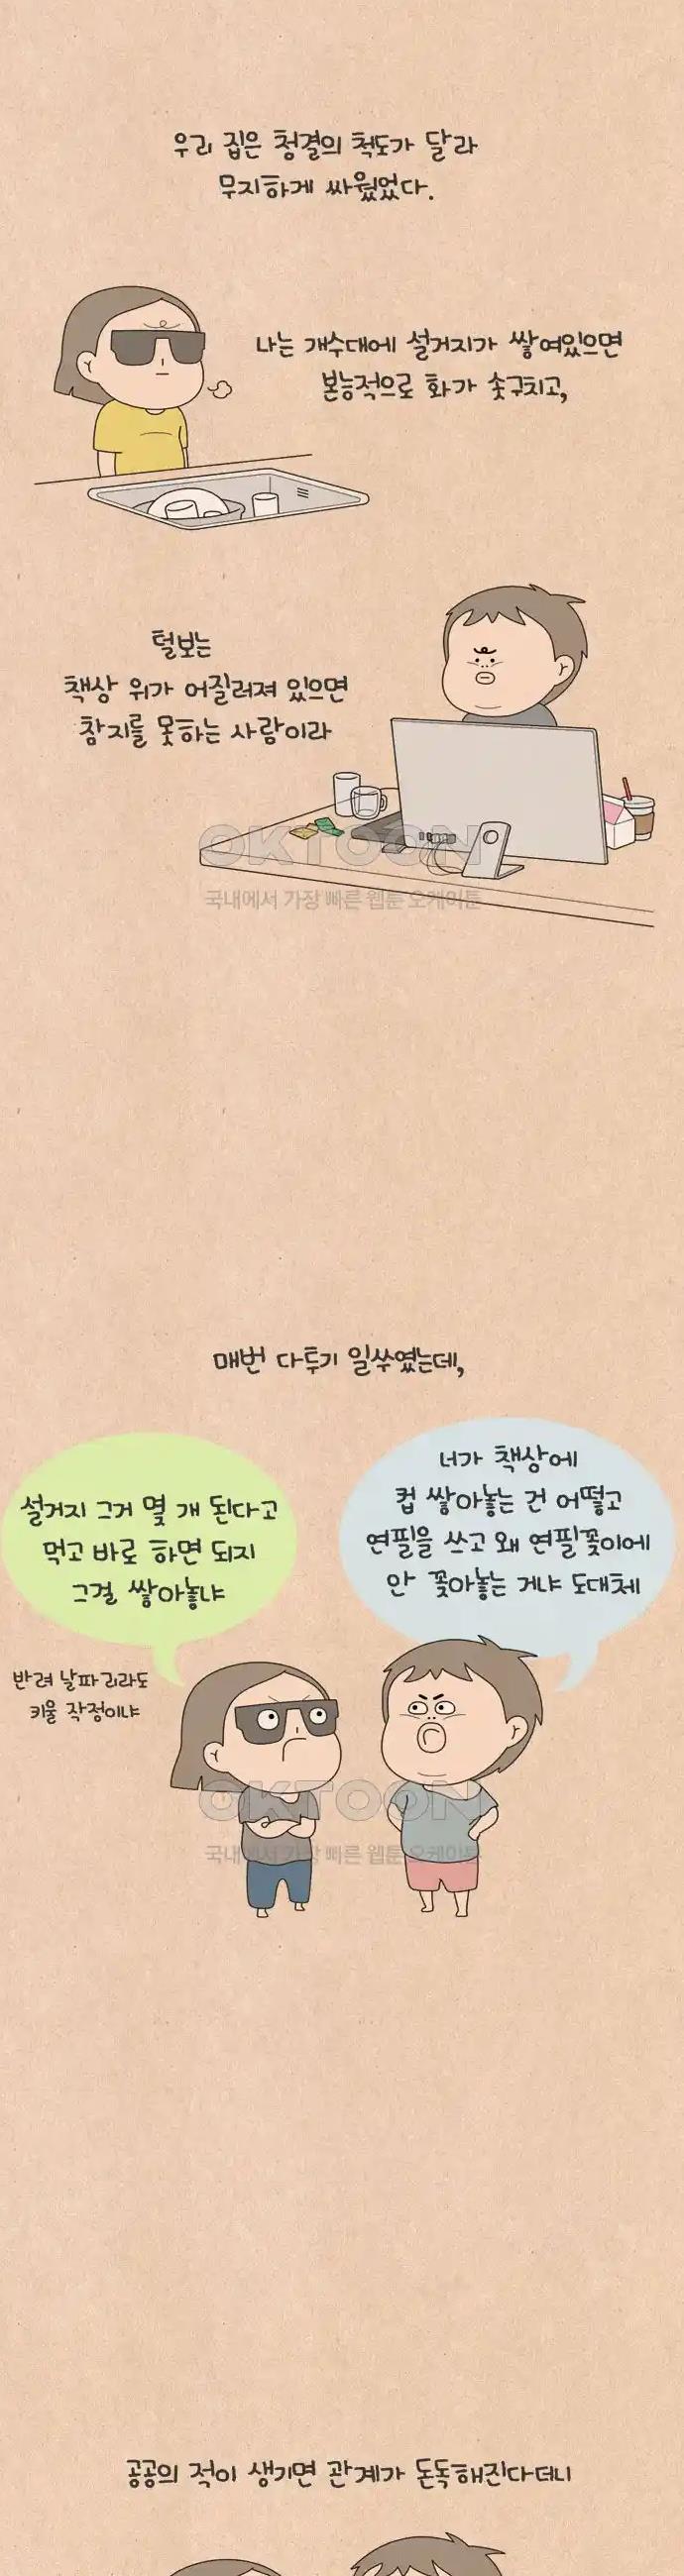 우리 집은 청결의 척도가 달라
무지하게 싸웠었다.
나는 개수대에 설거지가 쌓여있으면
본능적으로 화가 솟구치고,
털보는
책상 위가 어질러져 있으면
참지를 못하는 사람이라
OKTOON
국내에서 가장 빠른 웹툰 오케이툰
매번 다투기 일쑤였는데,
설거지 그거 몇 개 된다고
먹고 바로 하면 되지
그걸 쌓아놓냐
너가 책상에
컵 쌓아놓는 건 어떻고
연필을 쓰고 왜 연필꽂이에
안 꽂아놓는 거냐 도대체
반려 날파리라도
키울 작정이냐
OKTOON
국내에서 가장 빠른 웹툰 오케이툰
공공의 적이 생기면 관계가 돈독해진다더니